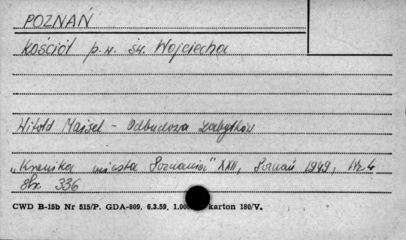 POZNAŃ
Kościół p.w. św. Wojciecha
Witold Maisel - Odbudowa zabytków
„Kronika miasta Poznania" XXII, Poznań 1949, Nr 4
Str. 336
CWD B-15b Nr 515/P. GDA-809. 6.3.59. 1.00 karton 180/V.